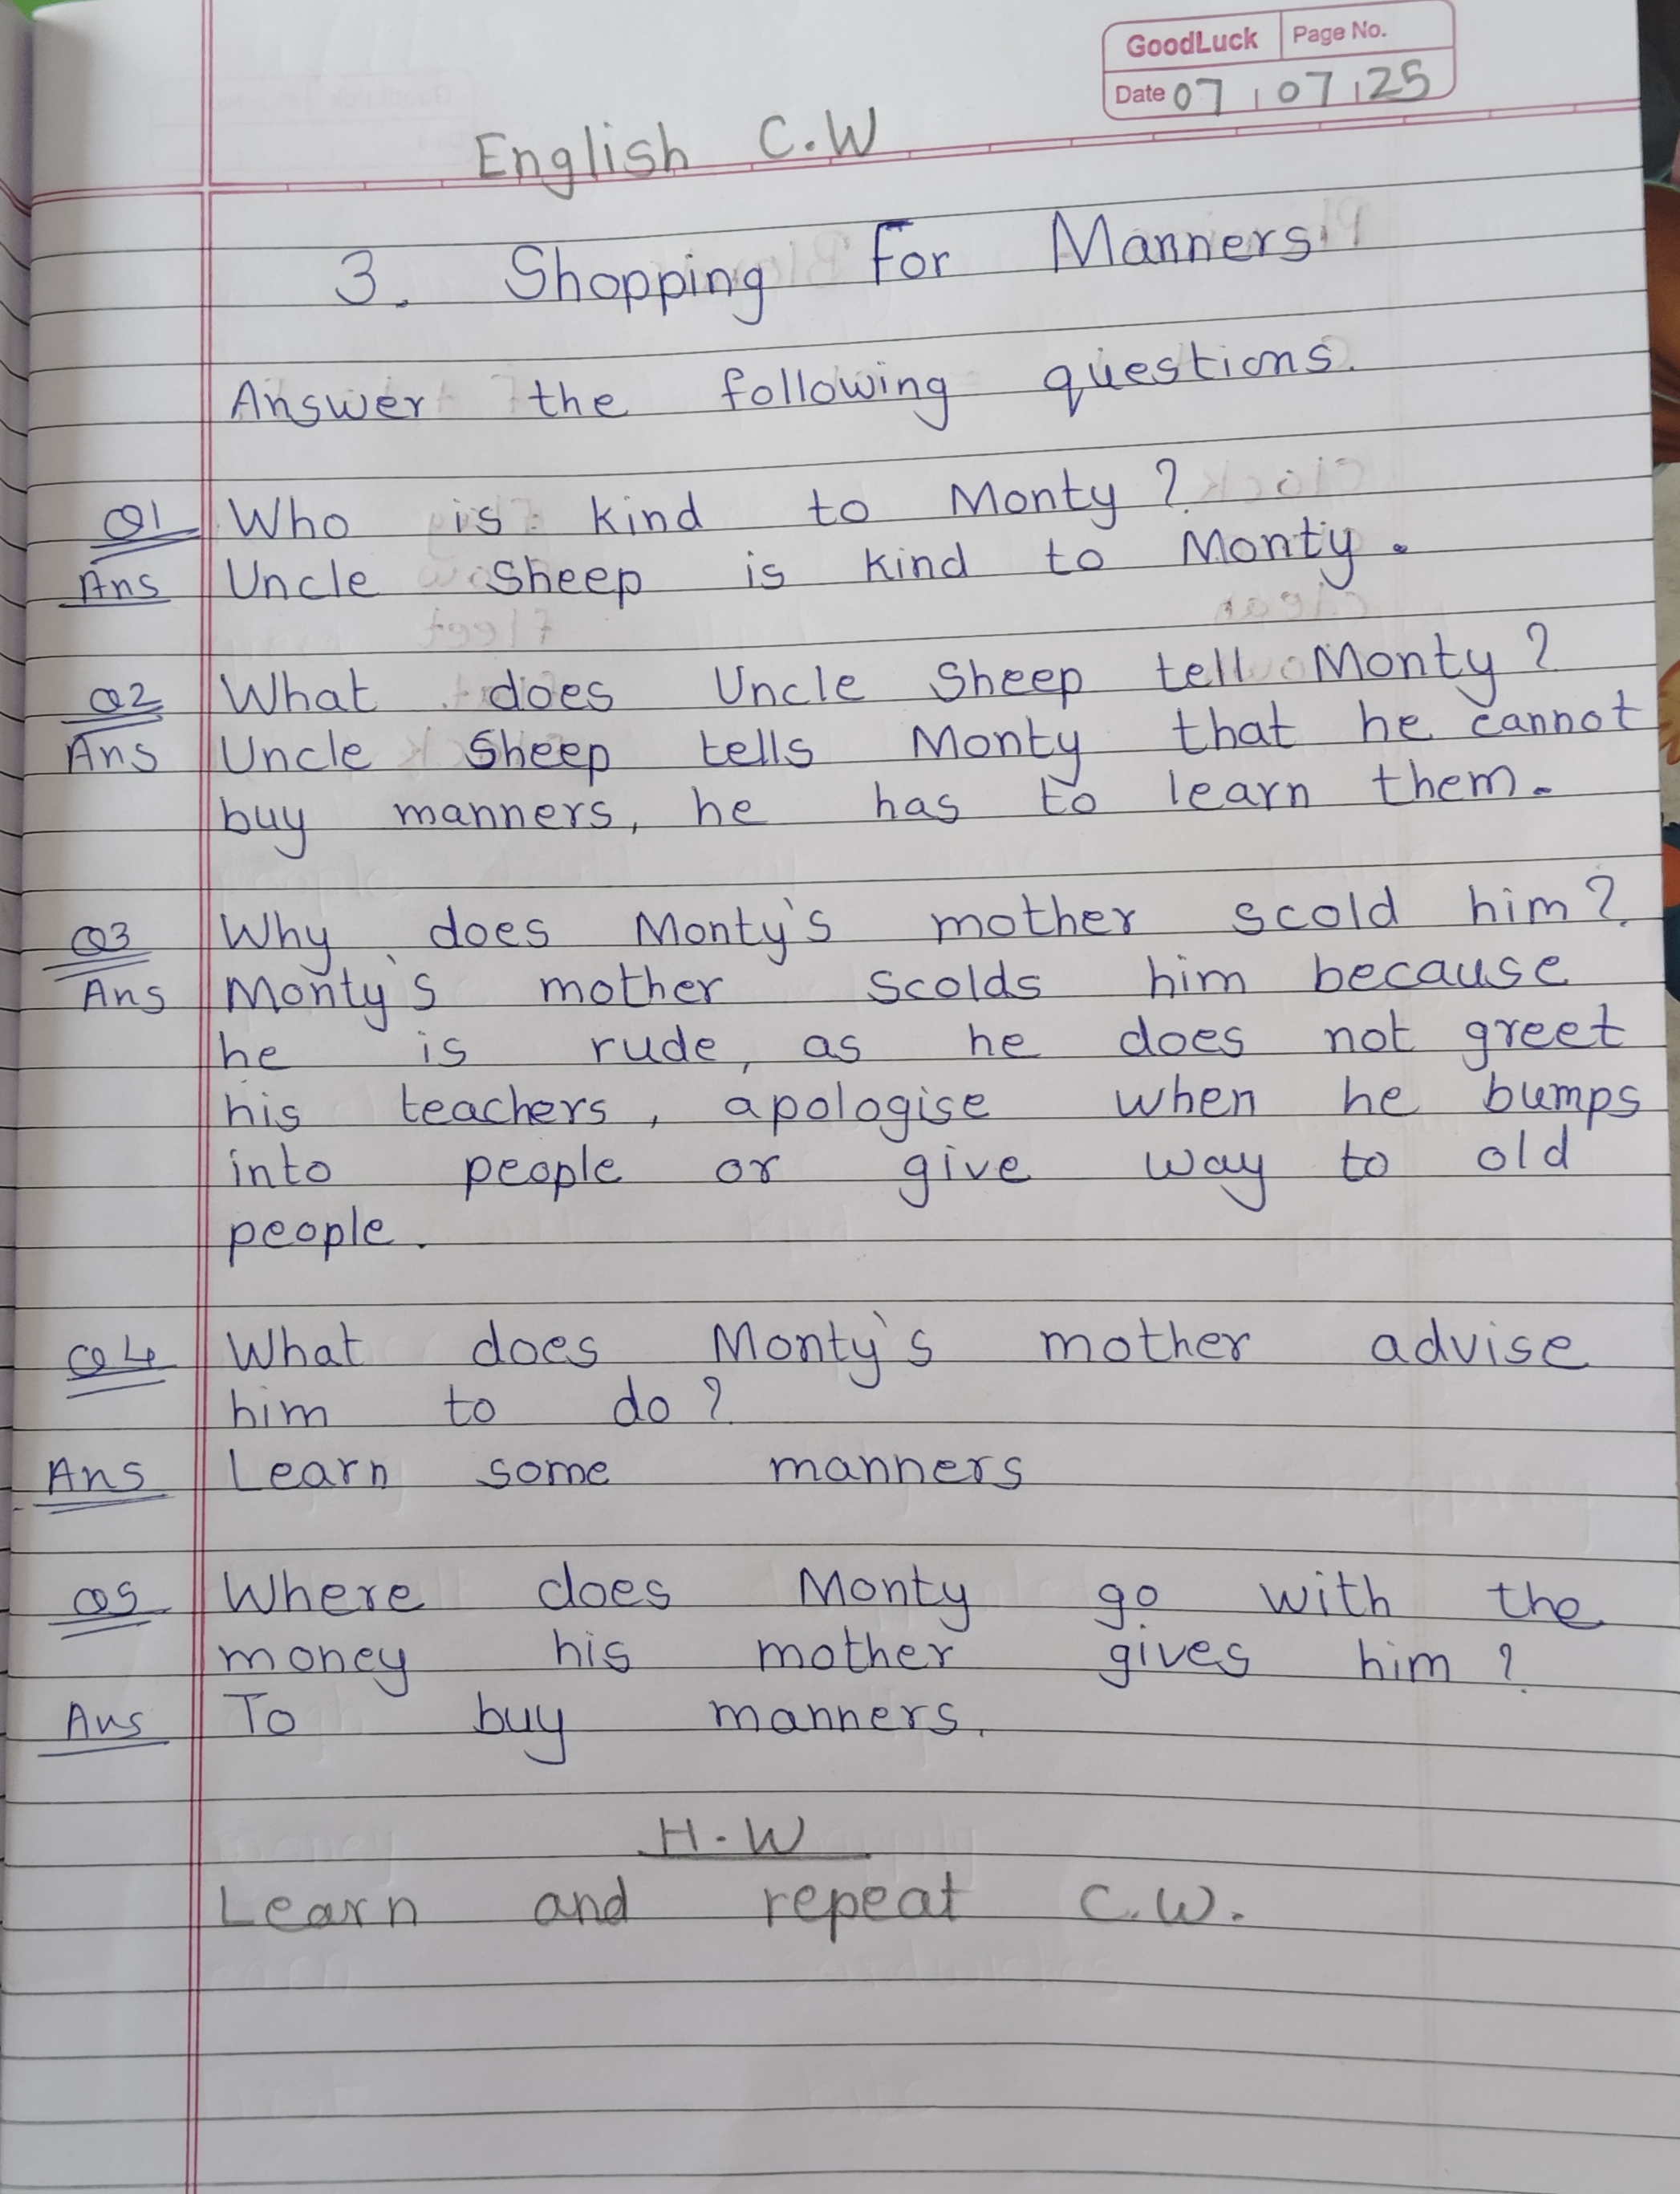 GoodLuck Page No.
Date 07 07 25
English C.W
3. Shopping For Manners
Answer the following questions.
Q1 Who is kind to Monty ?
Ans Uncle Sheep is kind to Monty.
Q2 What does Uncle Sheep tell Monty ?
Ans Uncle Sheep tells Monty that he cannot
buy manners, he has to learn them.
Q3 Why does Monty's mother scold him ?
Ans Monty's mother scolds him because
he is rude, as he does not greet
his teachers, apologise when he bumps
into people or give way to old
people.
Q4 What does Monty's mother advise
him to do ?
Ans Learn some manners
Q5 Where does Monty go with the
money his mother gives him ?
Ans To buy manners.
H.W
Learn and repeat C.W.